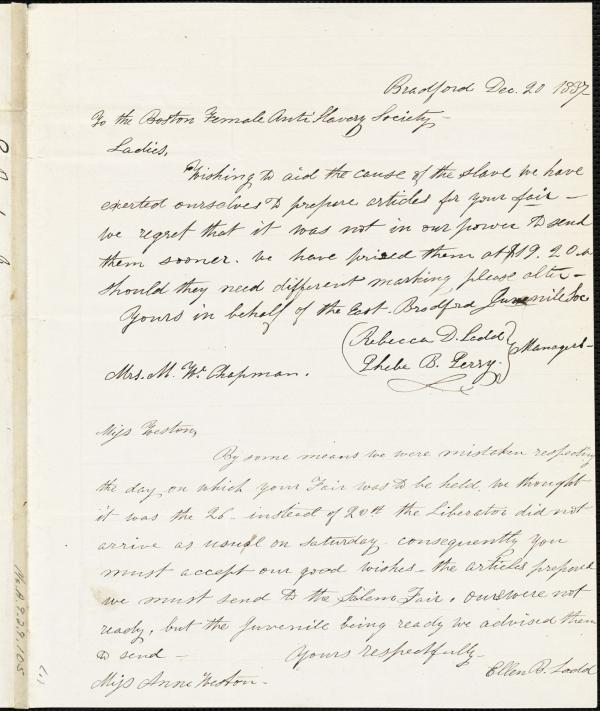 Bradford Dec. 20 1837
To the Boston Female Anti Slavery Society -
Ladies,
Wishing to aid the cause of the slave we have
exerted ourselves to prepare articles for your fair -
we regret that it was not in our power to send
them sooner. We have prized them at $19.20.
should they need different marking please alter -
Yours in behalf of the East-Bradford Juvenile Soc
Rebecca D. Ladd
Phebe B. Perry.
Managers -
Mrs. M. W. Chapman.
Miss Weston,
By some means we were mistaken respecting
the day on which your Fair was to be held. we thought
it was the 26 - instead of 20th the Liberator did not
arrive as usual on Saturday. consequently you
must accept our good wishes - the articles prepared
we must send to the Salem Fair. ours were not
ready, but the Juvenile being ready we advised them
to send - Yours respectfully -
Ellen B. Ladd
Miss Anne Weston -